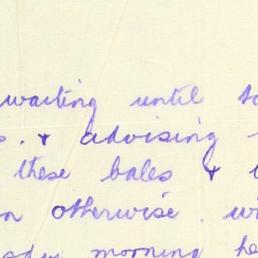 waiting until
. & advising
these bales &
otherwise.
morning